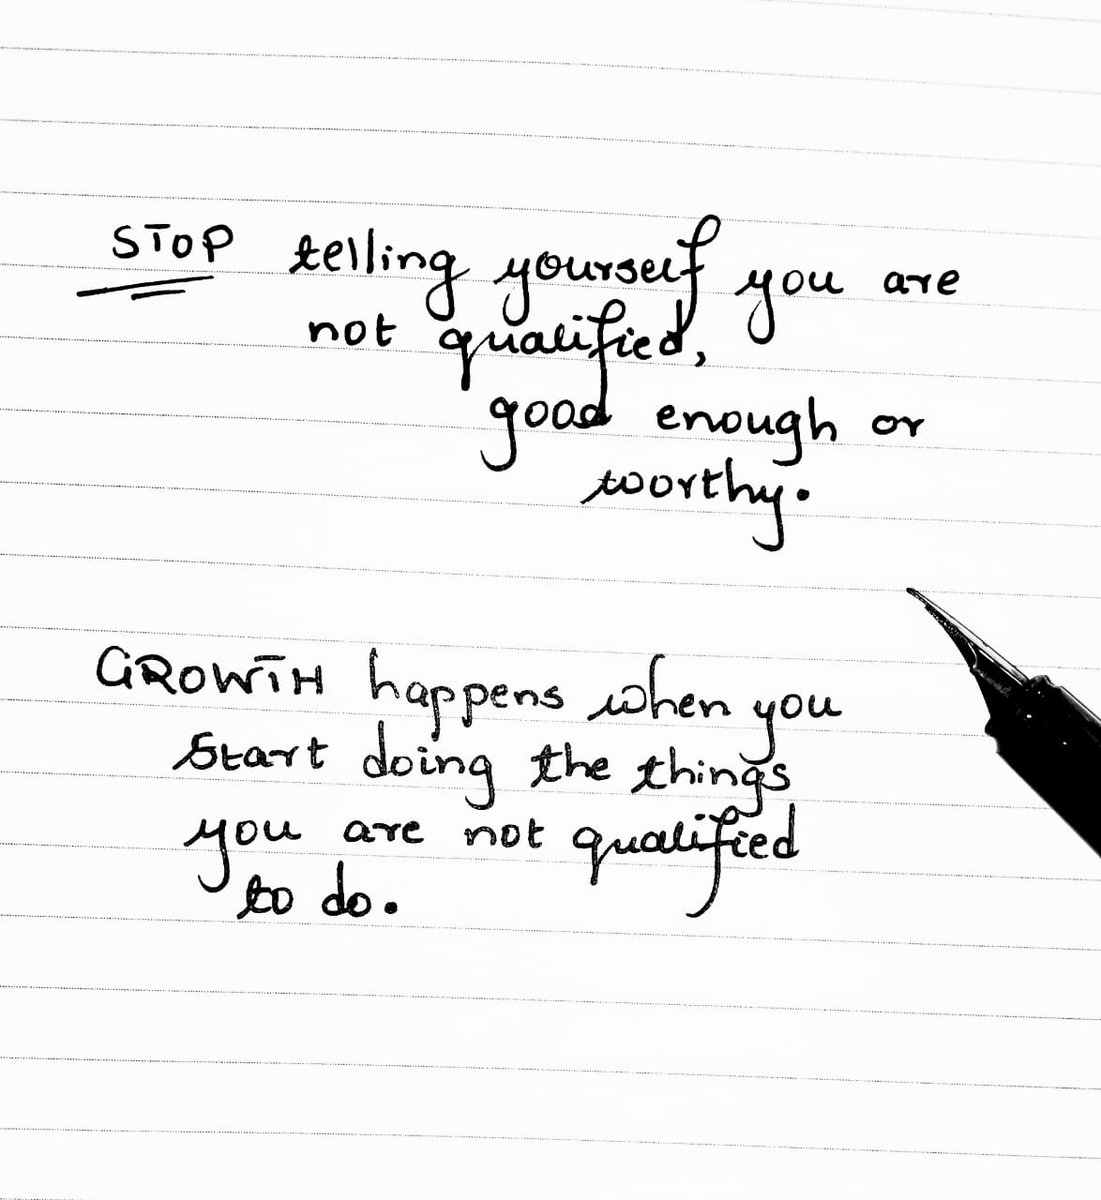 STOP telling yourself you are
not qualified,
good enough or
worthy.
GROWTH happens when you
start doing the things
you are not qualified
to do.